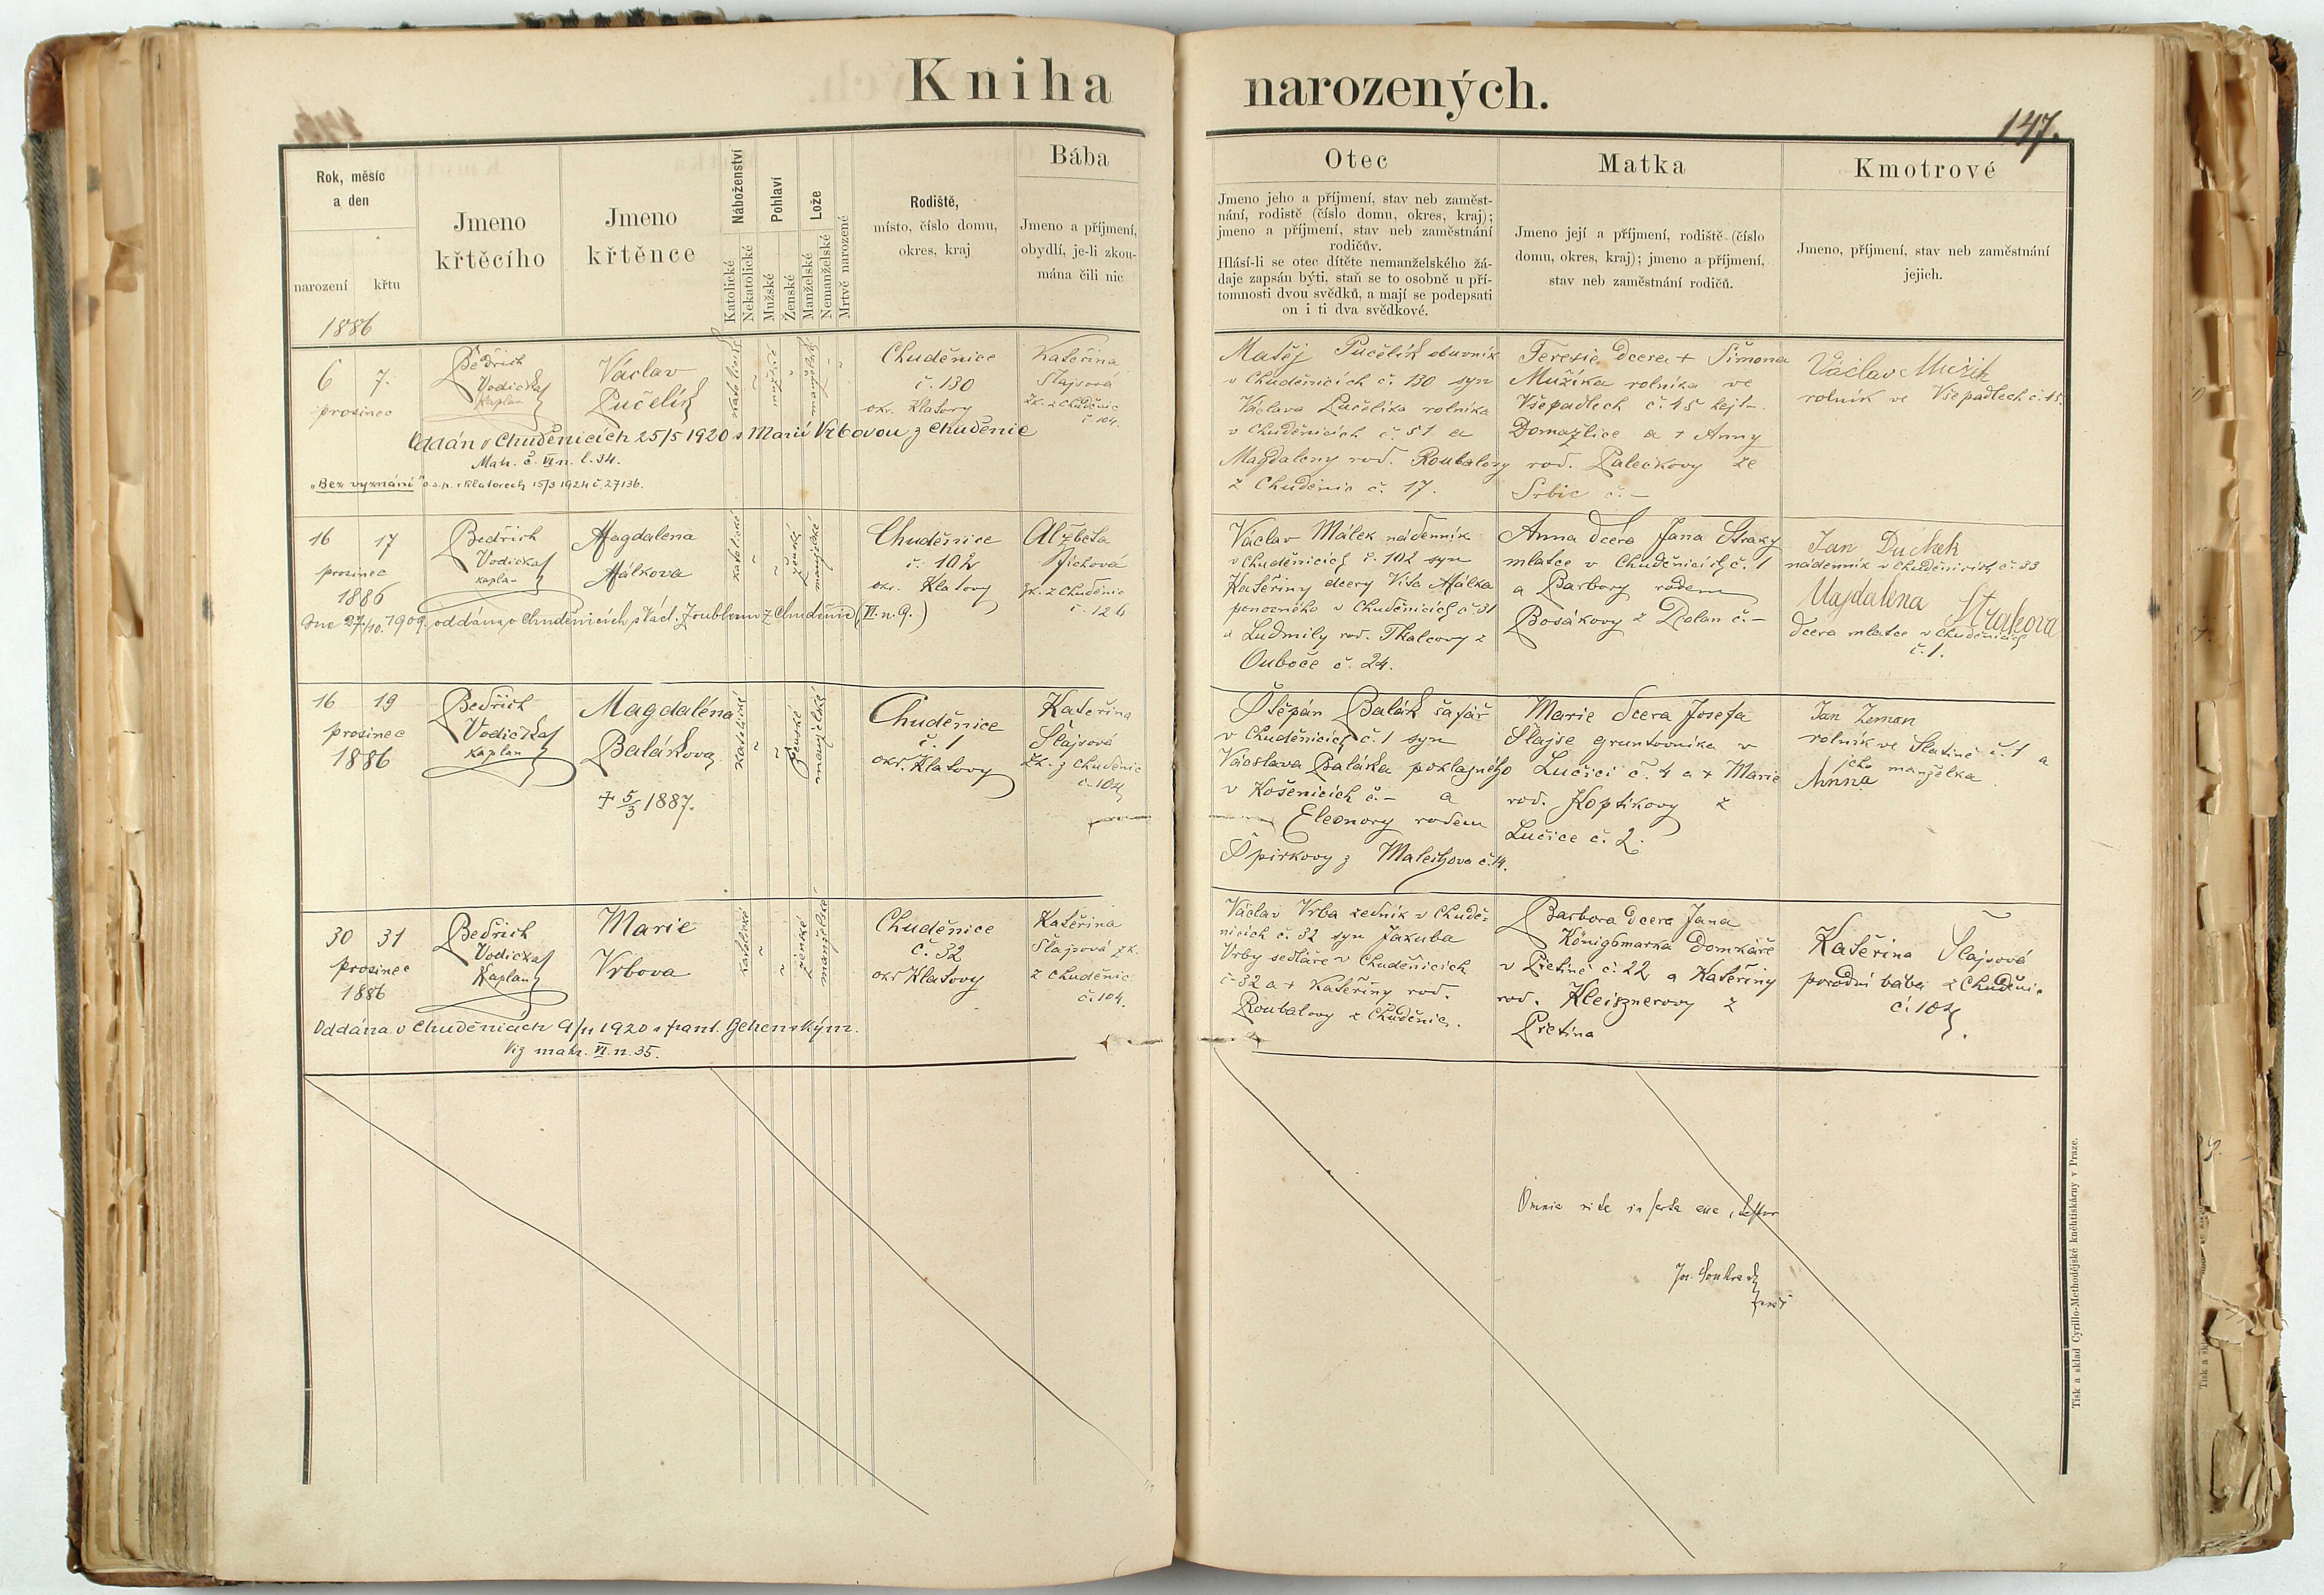 Kniha narozených.
147.
Rok, měsíc
a den
narození
křtu
1886
Jmeno
křtěcího
Jmeno
křtěnce
Náboženství
Katolické
Nekatolické
Pohlaví
Mužské
Ženské
Lože
Manželské
Nemanželské
Mrtvě narozené
Rodiště,
místo, číslo domu,
okres, kraj
Bába
Jmeno a příjmení,
obydlí, je-li zkou-
mána čili nic
Otec
Jmeno jeho a příjmení, stav neb zaměst-
nání, rodistě (číslo domu, okres, kraj);
jmeno a příjmení, stav neb zaměstnání
rodičův.
Hlásí-li se otec dítěte nemanželského žá-
daje zapsán býti, staň se to osobně u pří-
tomnosti dvou svědků, a mají se podepsati
on i ti dva svědkové.
Matka
Jmeno její a příjmení, rodiště (číslo
domu, okres, kraj); jmeno a příjmení,
stav neb zaměstnání rodičů.
Kmotrové
Jmeno, příjmení, stav neb zaměstnání
jejich.
6 7.
prosinec
Bedřich
Vodička
kaplan
Václav
Pučelík
katolické
mužské
manželské
Chuděnice
č. 130
okr. Klatovy
Kateřina
Šlajsová
zk. z Chuděnic
č. 104.
Matěj Pučelík obuvník
v Chuděnicích č. 130 syn
Václava Pučelíka rolníka
v Chuděnicích č. 51 a
Magdaleny rod. Roubalovy
z Chuděnic č. 17.
Terezie dcera + Šimona
Mužíka rolníka ve
Všepadlech č. 45 hejt-.
Domažlice a + Anny
rod. Paleckovy ze
Srbic č. –
Václav Mužík
rolník ve Všepadlech č. 45.
Oddán v Chuděnicích 25/5 1920 s Marií Vrbovou z Chuděnic
Matr. č. VI n. l. 34.
"Bez vyznání" o.s.p. v Klatovech 15/3 1924 č. 27136.
16 17
prosinec
1886
Bedřich
Vodička
kaplan
Magdalena
Málkova
katolické
ženské
manželské
Chuděnice
č. 102
okr. Klatovy
Alžběta
Jíchová
zk. z Chuděnic
č. 126
Václav Málek nádenník
v Chuděnicích č. 102 syn
Kateřiny dcery Víta Málka
ponocného v Chuděnicích č. 31
a Ludmily rod. Tkalcovy z
Ouboče č. 24.
Anna dcera Jana Straky
mlatce v Chuděnicích č. 1
a Barbory rodem
Bosákovy z Dolan č. –
Jan Duchek
nádenník v Chuděnicích č. 33
Majdalena Strakova
dcera mlatce v Chuděnicích
č. 1.
Dne 27./10. 1909. oddána v Chuděnicích s Václ. Zoubkem z Chuděnic (VI. n. 9.)
16 19
prosinec
1886
Bedřich
Vodička
kaplan
Magdaléna
Balákova
+ 5/3 1887.
katolické
ženské
manželské
Chuděnice
č. 1
okr. Klatovy
Kateřina
Šlajsová
zk. z Chuděnic
č. 104
Štěpán Balák šafář
v Chuděnicích č. 1 syn
Vácslava Baláka poklasného
v Košenicích č. – a
Eleonory rodem
Špirkovy z Malechova č. 14.
Marie dcera Josefa
Šlajse gruntovníka v
Lučici č. 4 a + Marie
rod. Koptikovy z
Lučice č. 2.
Jan Zeman
rolník ve Slatině č. 1 a
jeho manželka
Anna
30 31
prosinec
1886
Bedřich
Vodička
Kaplan
Marie
Vrbova
katolické
ženské
manželské
Chuděnice
č. 32
okr Klatovy
Kateřina
Šlajsová zk.
z Chuděnic
č. 104.
Václav Vrba zedník v Chudě-
nicích č. 32 syn Jakuba
Vrby sedláře v Chuděnicích
č. 32 a + Kateřiny rod.
Roubalovy z Chuděnic.
Barbora dcera Jana
Königsmarka Domkáře
v Přetíně č. 22 a Kateřiny
rod. Kleisznerovy z
Přetína
Kateřina Šlajsová
porodní bába z Chuděnic
č. 104.
Oddána v Chuděnicích 9/11 1920 s Frant. Behenským.
Viz matr. VI. n. 35.
Omnia rite inserta esse, testor
Jos. Soukup
farář
Tisk a sklad Cyrillo-Methodějské knihtiskárny v Praze.